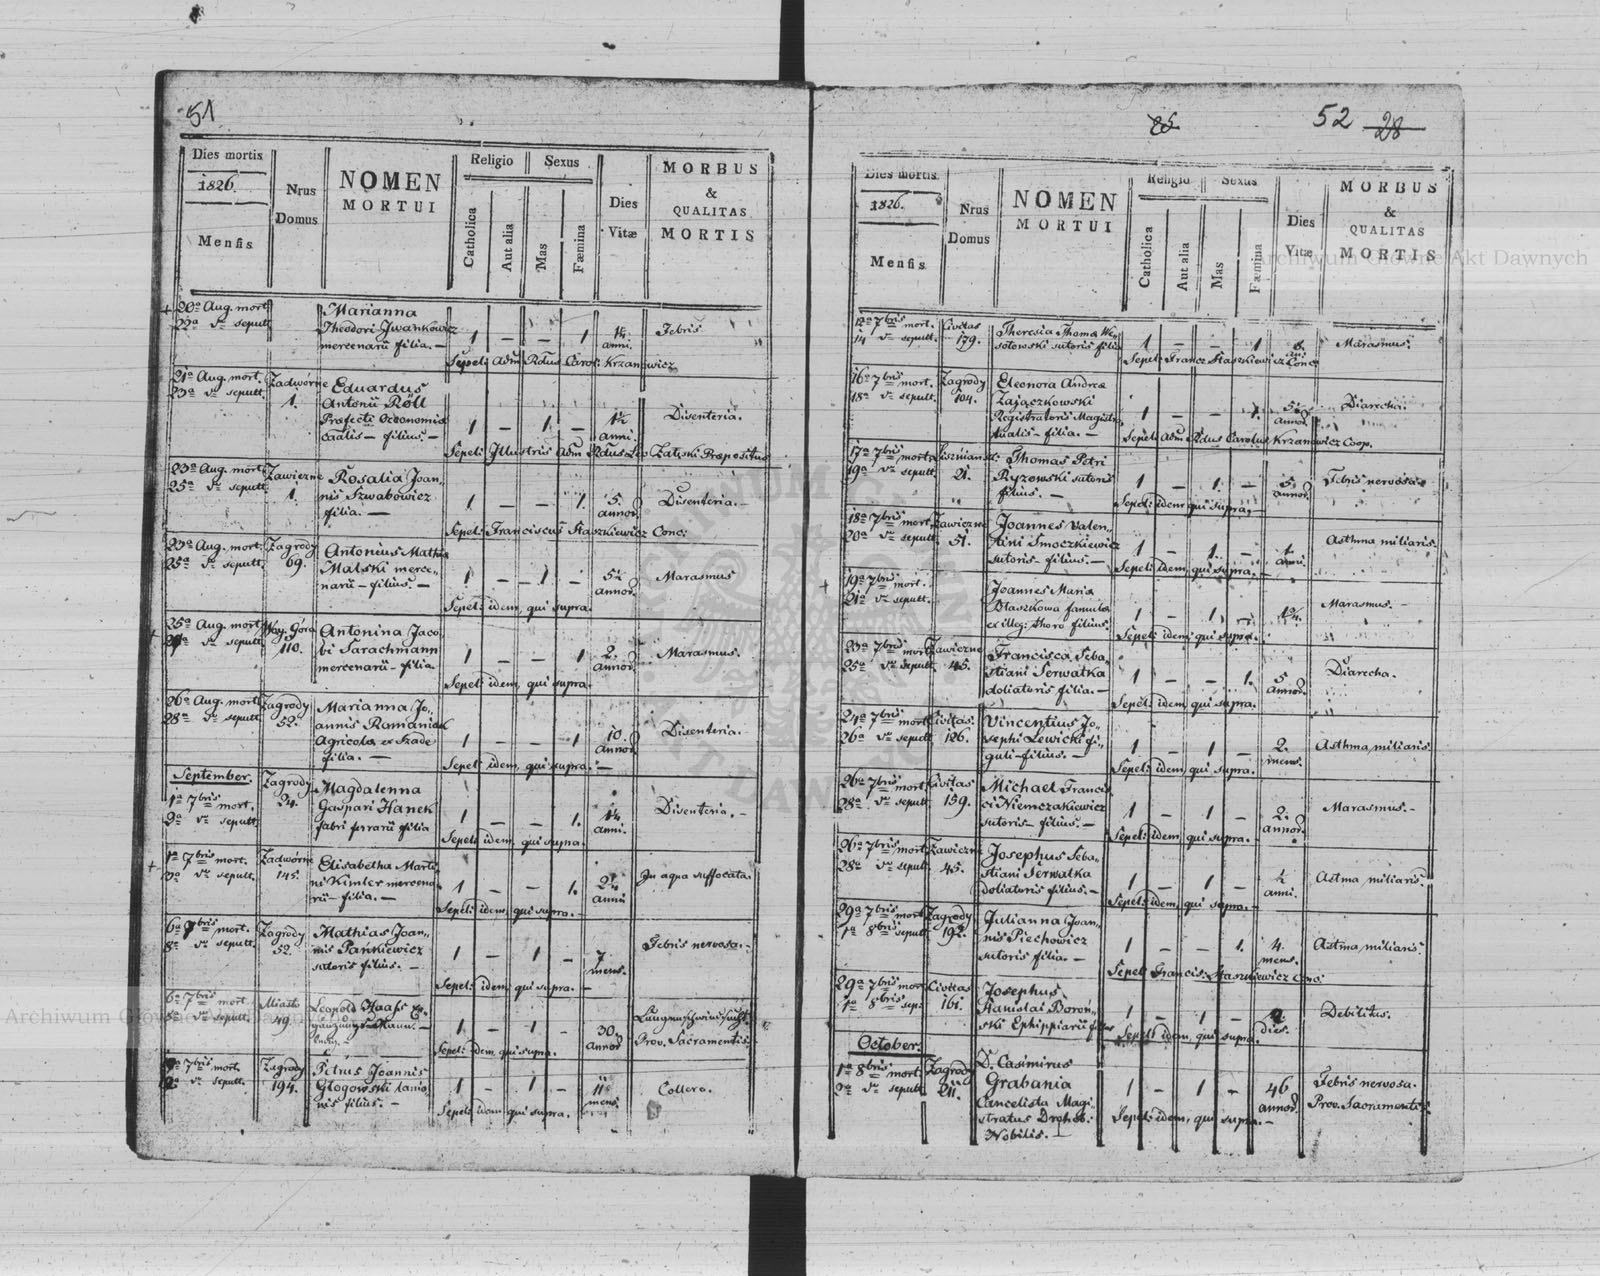 51
Dies mortis
1826.
Mensis
Nrus
Domus
NOMEN
MORTUI
Religio
Sexus
Catholica
Aut alia
Mas
Fæmina
Dies
Vitæ
MORBUS
&
QUALITAS
MORTIS
20a Aug. mort.
22a d. sepult.
Marianna
Theodori Jwankowicz
mercenarii filia. —
1 — — 1
1¼
anni.
Febris
Sepel: Adm Rdus Carol: Krzanowicz
21a Aug. mort.
23a d. sepult.
Zadwórne
1.
Eduardus
Antonii Röll
Præfecti Oeconomiæ
Caalis — filius. —
1 — 1 —
1½
anni
Disenteria.
Sepel: Jllustris Adm Rdus Leo Załęski Præpositus
23a Aug. mort.
25a d. sepult.
Zawiezne
1.
Rosalia Joan-
nis Szwabowicz
filia. —
1 — — 1.
5.
annor.
Disenteria. —
Sepel: Franciscus Staszkiewicz Conc:
23a Aug. mort.
25a d. sepult.
Zagrody
69.
Antonius Mathiæ
Malski merce-
narii — filius. —
1 — 1 —
5½
annor.
Marasmus
Sepel: idem, qui supra.
25a Aug. mort.
d. sepult.
Góra
110.
Antonina Jaco-
bi Sarachmann
mercenarii — filia
1 — — 1
2.
annor.
Marasmus.
Sepel: idem, qui supra.
26a Aug. mort.
28a d. sepult.
Zagrody
52.
Marianna Jo-
annis Romaniak
Agricolæ ex Szade
filia. —
1 — — 1.
10.
annor.
Disenteria.
Sepel: idem, qui supra. —
September.
1a 7bris mort.
2a d. sepult.
Zagrody
24.
Magdalenna
Gaspari Hanek
fabri ferrarii filia
1 — — 1.
1¼
anni.
Disenteria. —
Sepel: idem, qui supra.
1a 7bris mort.
3a d. sepult.
Zadwórne
145.
Elisabetha Marti-
ni Kimler mercena-
rii — filia. —
1 — — 1.
2½
anni
Jn aqua suffocata.
Sepel: idem, qui supra. —
6a 7bris mort.
8a d. sepult.
Zagrody
52.
Mathias Joan-
nis Pańkiewicz
sutoris filius. —
1 — 1 —
7
mens.
Febris nervosa. —
Sepel: idem, qui supra. —
6a 7bris mort.
8a d. sepult.
Miasto
49.
Leopold Haass
1 — 1 —
30.
annor
Lungenschwindsucht.
Prov. Sacramentis.
Sepel: idem, qui supra.
7bris mort.
d. sepult.
Zagrody
194.
Petrus Joannis
Głogowski lanio-
nis filius. —
1 — 1 —
11
mens.
Collero.
Sepel: idem, qui supra.
52
28
Dies mortis.
1826.
Mensis
Nrus
Domus
NOMEN
MORTUI
Religio
Sexus
Catholica
Aut alia
Mas
Fæmina
Dies
Vitæ
MORBUS
&
QUALITAS
MORTIS
12a 7bris mort.
14 d. sepult.
Civitas
179.
Theresia Thomæ We-
sołowski sutoris filia
1 — — 1
Marasmus.
Sepel: Franc: Staszkiewicz Conc:
16a 7bris mort.
18a d. sepult.
Zagrody
104.
Eleonora Andreæ
Zajączkowski
Registratoris Magistra-
tualis — filia. —
1 — — 1.
5½
annor.
Diarecha.
Sepel: Adm Rdus Carolus Krzanowicz Coop.
17a 7bris mort.
19a d. sepult.
21.
Thomas Petri
Ryzowski sutoris
filius. —
1 — 1. —
5.
annor.
Febris nervosa.
Sepel: idem qui supra, —
18a 7bris mort.
20a d. sepult.
Zawiezne
51.
Joannes Valen-
tini Smoczkiewicz
sutoris — filius. —
1 — 1. —
1.
anni.
Asthma miliaris.
Sepel: idem, qui supra. —
19a 7bris mort.
21a d. sepult.
Joannes Mariæ
Błaszkowa famulæ
ex illeg: thoro filius.
1 — 1. —
Marasmus. —
Sepel: idem, qui supra.
23a 7bris mort.
25a d. sepult.
Zawiezne
45.
Francisca Seba-
stiani Serwatka
doliatoris filia. —
1 — — 1.
5
annor.
Diarecha.
Sepel: idem, qui supra.
24a 7bris mort.
26a d. sepult.
Civitas.
126.
Vincentius Jo-
sephi Lewicki fi-
guli — filius. —
1 — 1 —
2.
mens.
Asthma miliaris.
Sepel: idem, qui supra.
26a 7bris mort.
28a d. sepult.
Civitas
159.
Michael Francis-
ci Niemczakiewicz
sutoris — filius. —
1 — 1 —
2.
annor.
Marasmus. —
Sepel: idem, qui supra.
26a 7bris mort.
28a d. sepult.
Zawiezne
45.
Josephus Seba-
stiani Serwatka
doliatoris filius. —
1 — 1 —
½
anni.
Astma miliaris.
Sepel: idem, qui supra. —
29a 7bris mort.
1a 8bris sepult.
Zagrody
192.
Julianna Joan-
nis Piechowicz
sutoris filia. —
1 — — 1.
4.
mens.
Astma miliaris.
Sepel: Francis: Staszkiewicz Conc:
29a 7bris mort.
1a 8bris sep.
Civitas
161.
Josephus
Stanislai Boroń-
ski Ephippiarii filius
1 — 1 —
dies.
Debilitas.
Sepel: idem, qui supra.
October.
1a 8bris mort.
2a d. sepult.
Zagrody
211.
D. Casimirus
Grabania
Cancelista Magi-
stratus Drohob:
Nobilis. —
1 — 1 —
46
annor.
Febris nervosa.
Prov. Sacramentis.
Sepel: idem, qui supra. —
Archiwum Główne Akt Dawnych
Archiwum Główne Akt Dawnych
ARCHIWUM GŁÓWNE AKT DAWNYCH